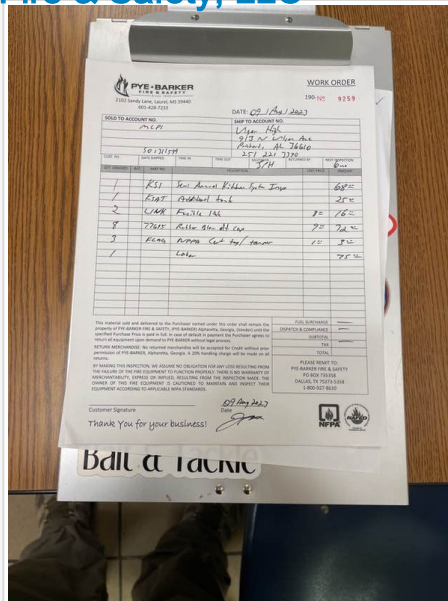 Fire & Safety, LLC
PYE-BARKER
FIRE & SAFETY
2102 Sandy Lane, Laurel, MS 39440
601-428-7233
WORK ORDER
190-No 9259
DATE: 09 / Aug / 2023
SOLD TO ACCOUNT NO.
SHIP TO ACCOUNT NO.
High
251 221
DATE SHIPPED
TIME IN
TIME OUT
NEXT INSPECTION
QTY. ORDERED
PART NO.
DESCRIPTION
UNIT PRICE
AMOUNT
1 KS1 Semi Annual Kitchen System Insp 68
1 Additional tank 25
2 LINK Fusible link 8 16
8 Rubber Blow off cap 9 72
3 NFPA 1 3
1 Labor 75
This material sold and delivered to the Purchaser named under this order shall remain the
property of PYE-BARKER FIRE & SAFETY, (PYE-BARKER) Alpharetta, Georgia, (Vendor) until the
specified Purchase Price is paid in full. In case of default in payment the Purchaser agrees to
return all equipment upon demand to PYE-BARKER without legal process.
RETURN MERCHANDISE: No returned merchandise will be accepted for Credit without prior
permission of PYE-BARKER, Alpharetta, Georgia. A 20% handling charge will be made on all
returns.
BY MAKING THIS INSPECTION, WE ASSUME NO OBLIGATION FOR ANY LOSS RESULTING FROM
THE FAILURE OF THE FIRE EQUIPMENT TO FUNCTION PROPERLY. THERE IS NO WARRANTY OF
MERCHANTABILITY, EXPRESS OR IMPLIED, RESULTING FROM THE INSPECTION MADE. THE
OWNER OF THIS FIRE EQUIPMENT IS CAUTIONED TO MAINTAIN AND INSPECT THEIR
EQUIPMENT ACCORDING TO APPLICABLE NFPA STANDARDS.
FUEL SURCHARGE
DISPATCH & COMPLIANCE
SUBTOTAL
TAX
TOTAL
PLEASE REMIT TO:
PYE-BARKER FIRE & SAFETY
PO BOX 735358
DALLAS, TX 75373-5358
1-800-927-8610
09 Aug 2023
Customer Signature
Date
Thank You for your business!
NFPA
Bait & Tackle